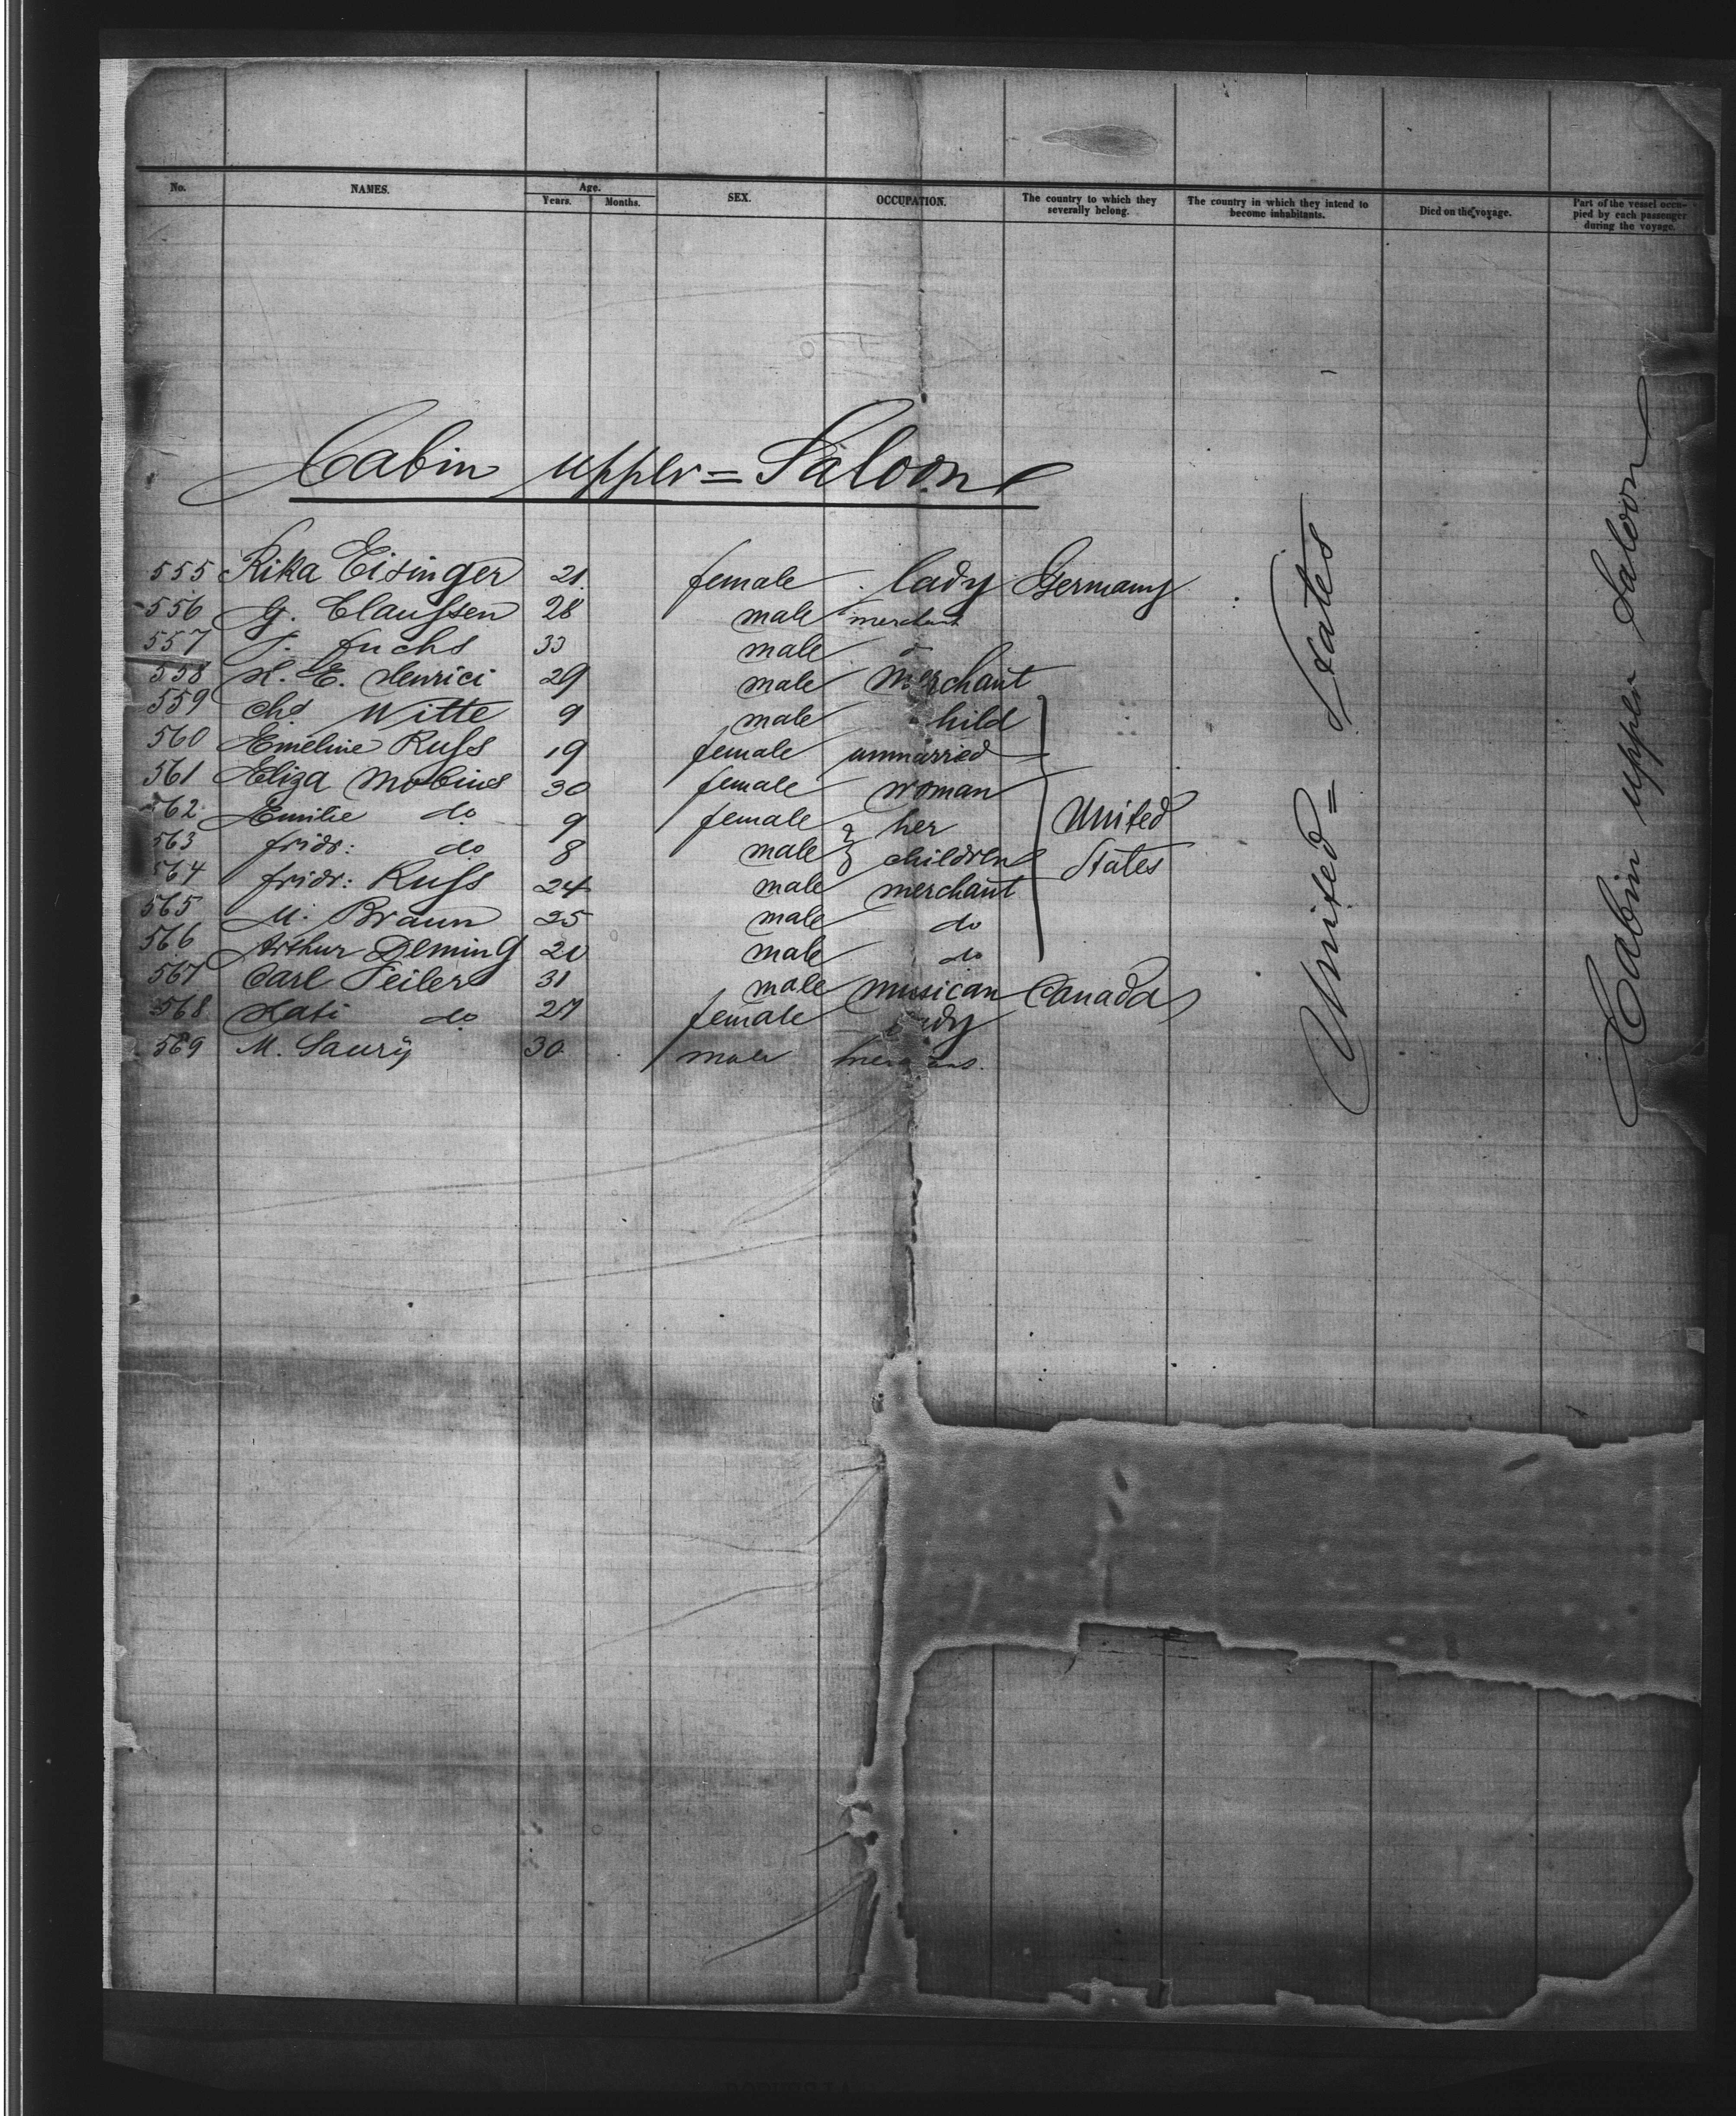 No. NAMES. Age. Years. Months. SEX. OCCUPATION. The country to which they severally belong. The country in which they intend to become inhabitants. Died on the voyage. Part of the vessel occupied by each passenger during the voyage.
Cabin upper = Saloon
555 Rika Eisinger 21 female lady Germany
556 G. Claussen 28 male merchant
557 J. Fuchs 33 male do
558 H. E. Henrici 29 male merchant
559 Chs Witte 9 male child
560 Emeline Russ 19 female unmarried
561 Eliza Mobius 30 female woman
562 Emilie do 9 female her United
563 fridr: do 8 male children States
564 fridr: Russ 24 male merchant
565 M. Braun 25 male do
566 Arthur Deming 20 male do
567 Carl Feiler 31 male musican Canada
568 Kati do 27 female lady
569 M. Saury 30 male
United = States
Cabin upper Saloon